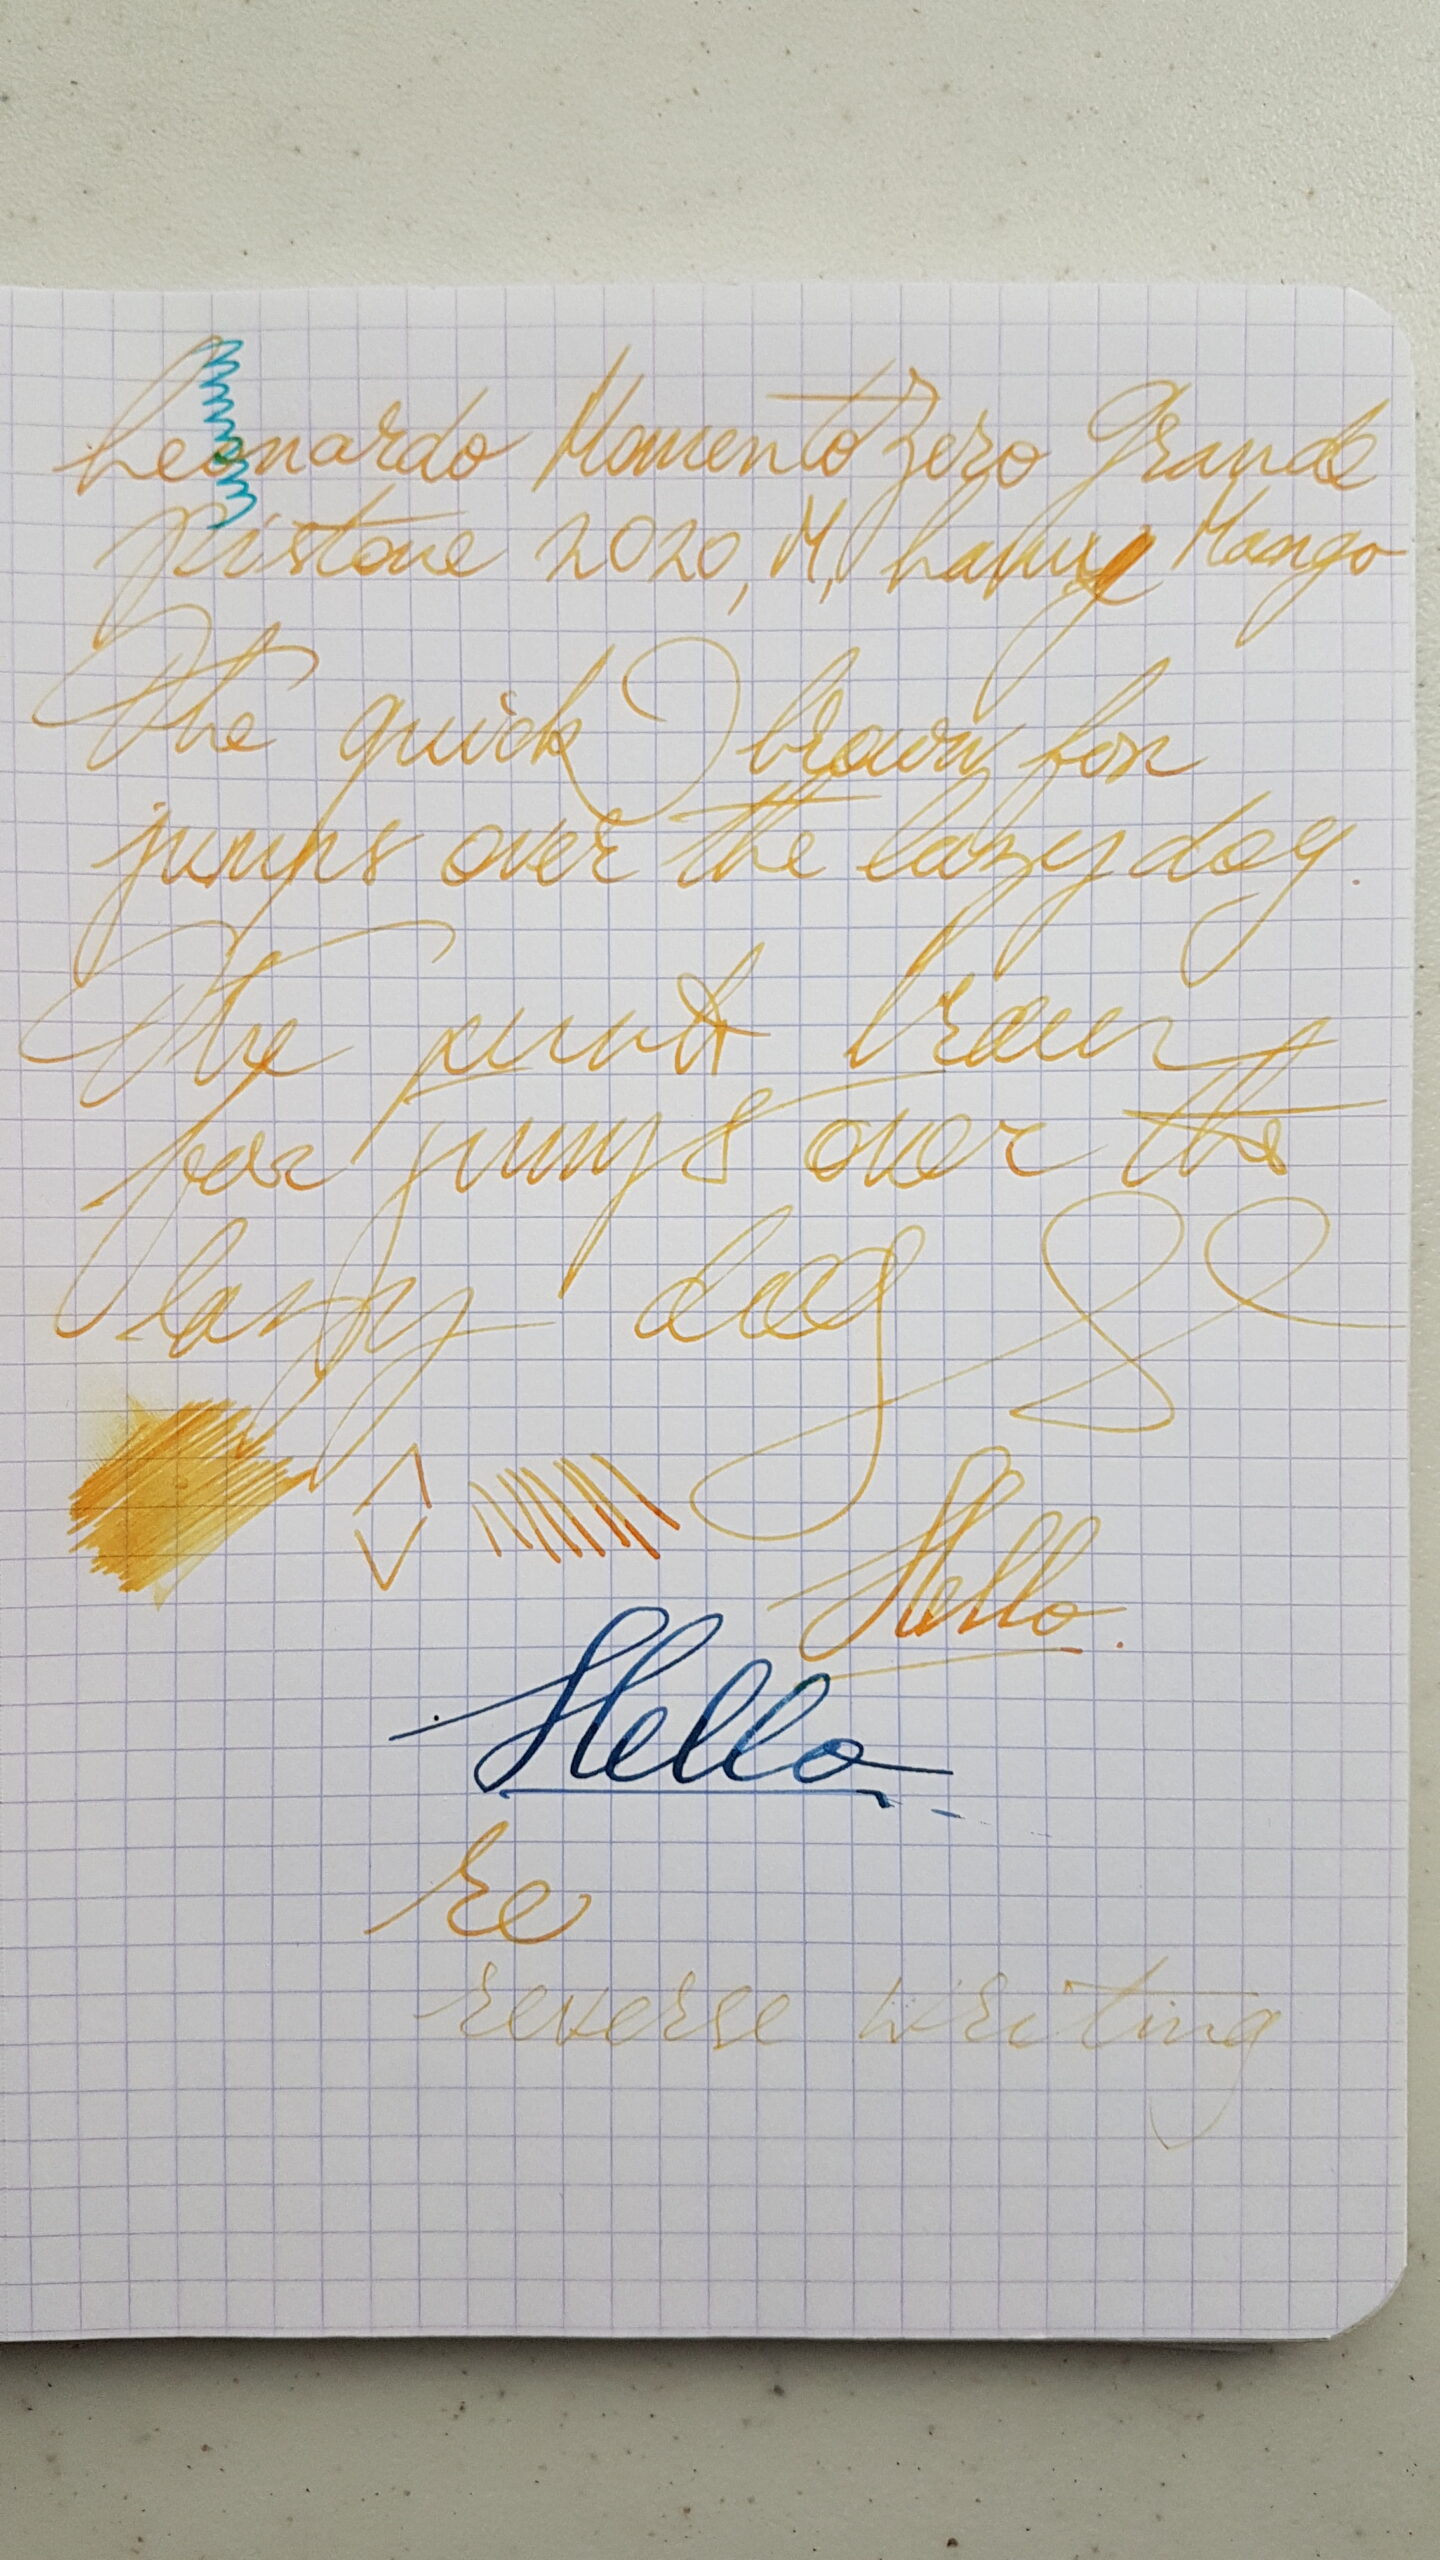 Leonardo Momento Zero Grande
Pistone 2020, M, Mango
The quick brown fox
jumps over the lazy dog.
The quick brown
fox jumps over the
lazy dog
Hello.
Hello
re
reverse writing